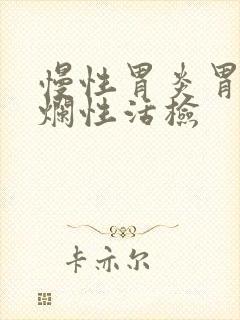 慢性胃炎胃
烂性活檢
卡亦尔